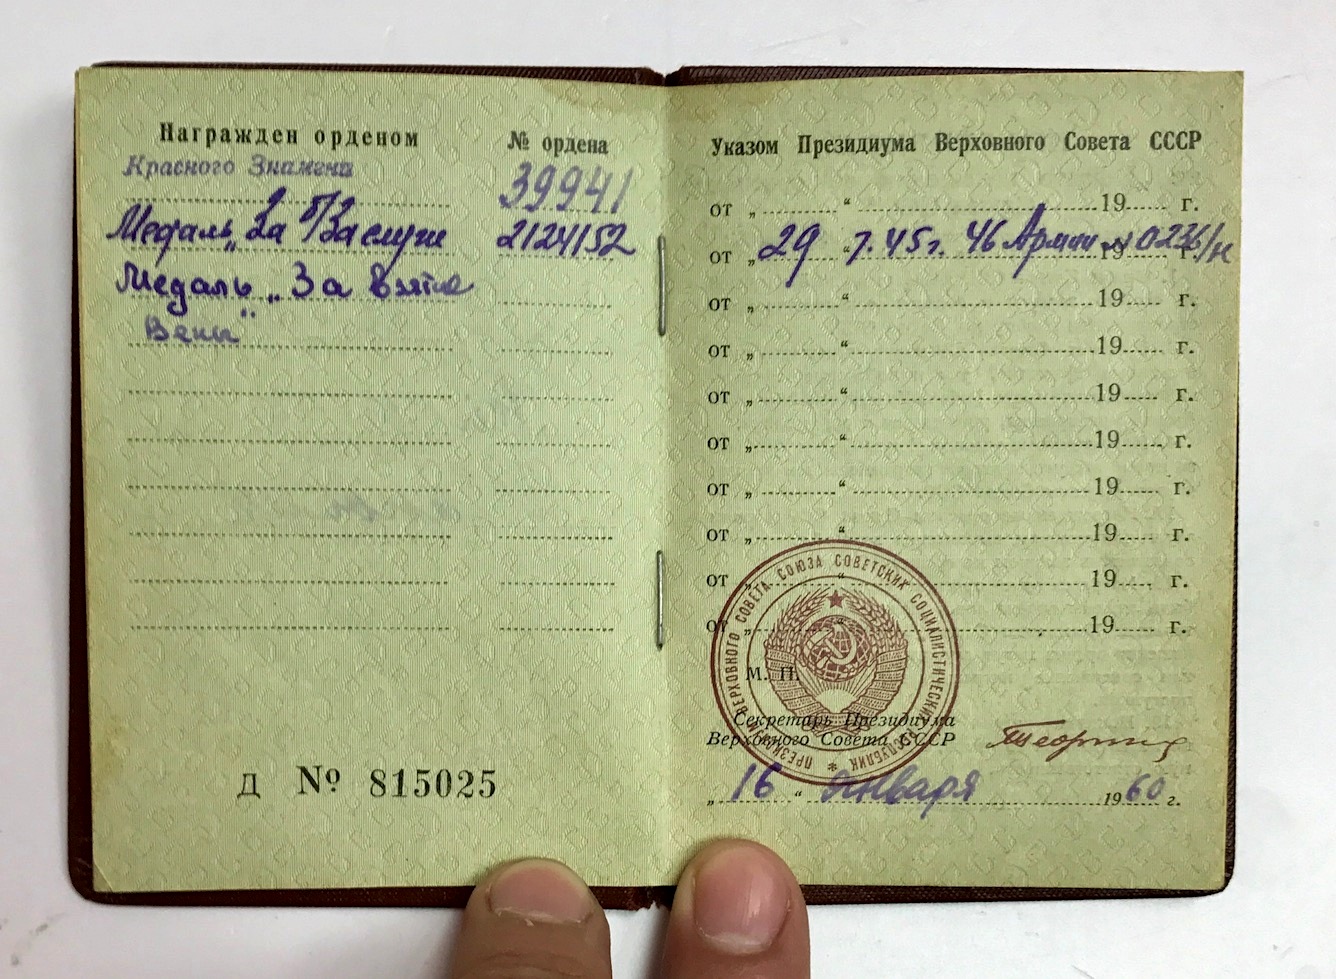 Награжден орденом № ордена
Красного Знамени 39941
Медаль „За б/Заслуги 2124152
Медаль „За взятие
Вены"
Д № 815025
Указом Президиума Верховного Совета СССР
от „ “ 19 г.
от „29 “ 7.45г. 46 Армии № 0236/н 19 г.
от „ “ 19 г.
от „ “ 19 г.
от „ “ 19 г.
от „ “ 19 г.
от „ “ 19 г.
от „ “ 19 г.
от „ “ 19 г.
от „ “ 19 г.
ПРЕЗИДИУМ ВЕРХОВНОГО СОВЕТА СОЮЗА СОВЕТСКИХ СОЦИАЛИСТИЧЕСКИХ РЕСПУБЛИК
М. П.
Секретарь Президиума
Верховного Совета СССР
„ 16 “ января 1960 г.